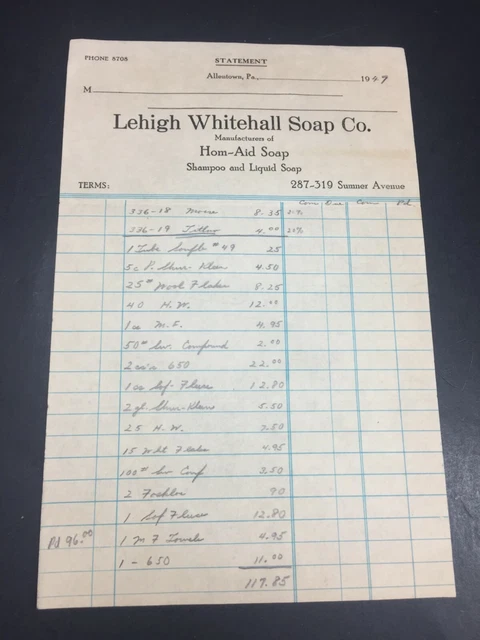 PHONE 8708
STATEMENT
Allentown, Pa., 1949
M
Lehigh Whitehall Soap Co.
Manufacturers of
Hom-Aid Soap
Shampoo and Liquid Soap
TERMS: 287-319 Sumner Avenue
Com Due Com Pd
336-18 Moore 8.35
336-19 4.00
1 #49 25
5 4.50
25# Wool Flakes 8.25
40 H.W. 12.00
1 cs M.F. 4.95
50# Sw. Compound 2.00
2 650 22.00
1 cs Sof. 12.80
2 gl. 5.50
25 H.W. 7.50
15 Wht Flakes 4.95
100# Sw Comp 3.50
2 90
1 Sof 12.80
Pd 96.00 1 M F Towels 4.95
1 - 650 11.00
117.85